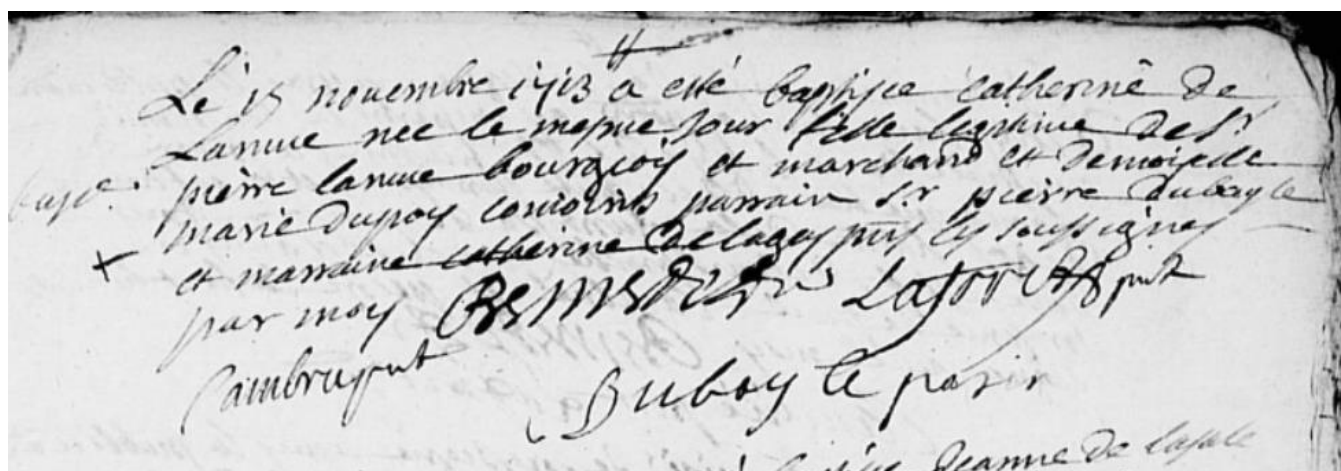 Le 15 novembre 1713 a esté baptisee catherine de
Lanuue nee le mesme jour fille legitime de Sr
pierre lanuue bourgeois et marchand et demoiselle
bapt. marie dupoy conjoints parrain Sr pierre duboy le
et marraine catherine delagoy pnts les soussignes
par moy Laforcade pnt
Cambra pnt Duboy le parin
Jeanne de lasale